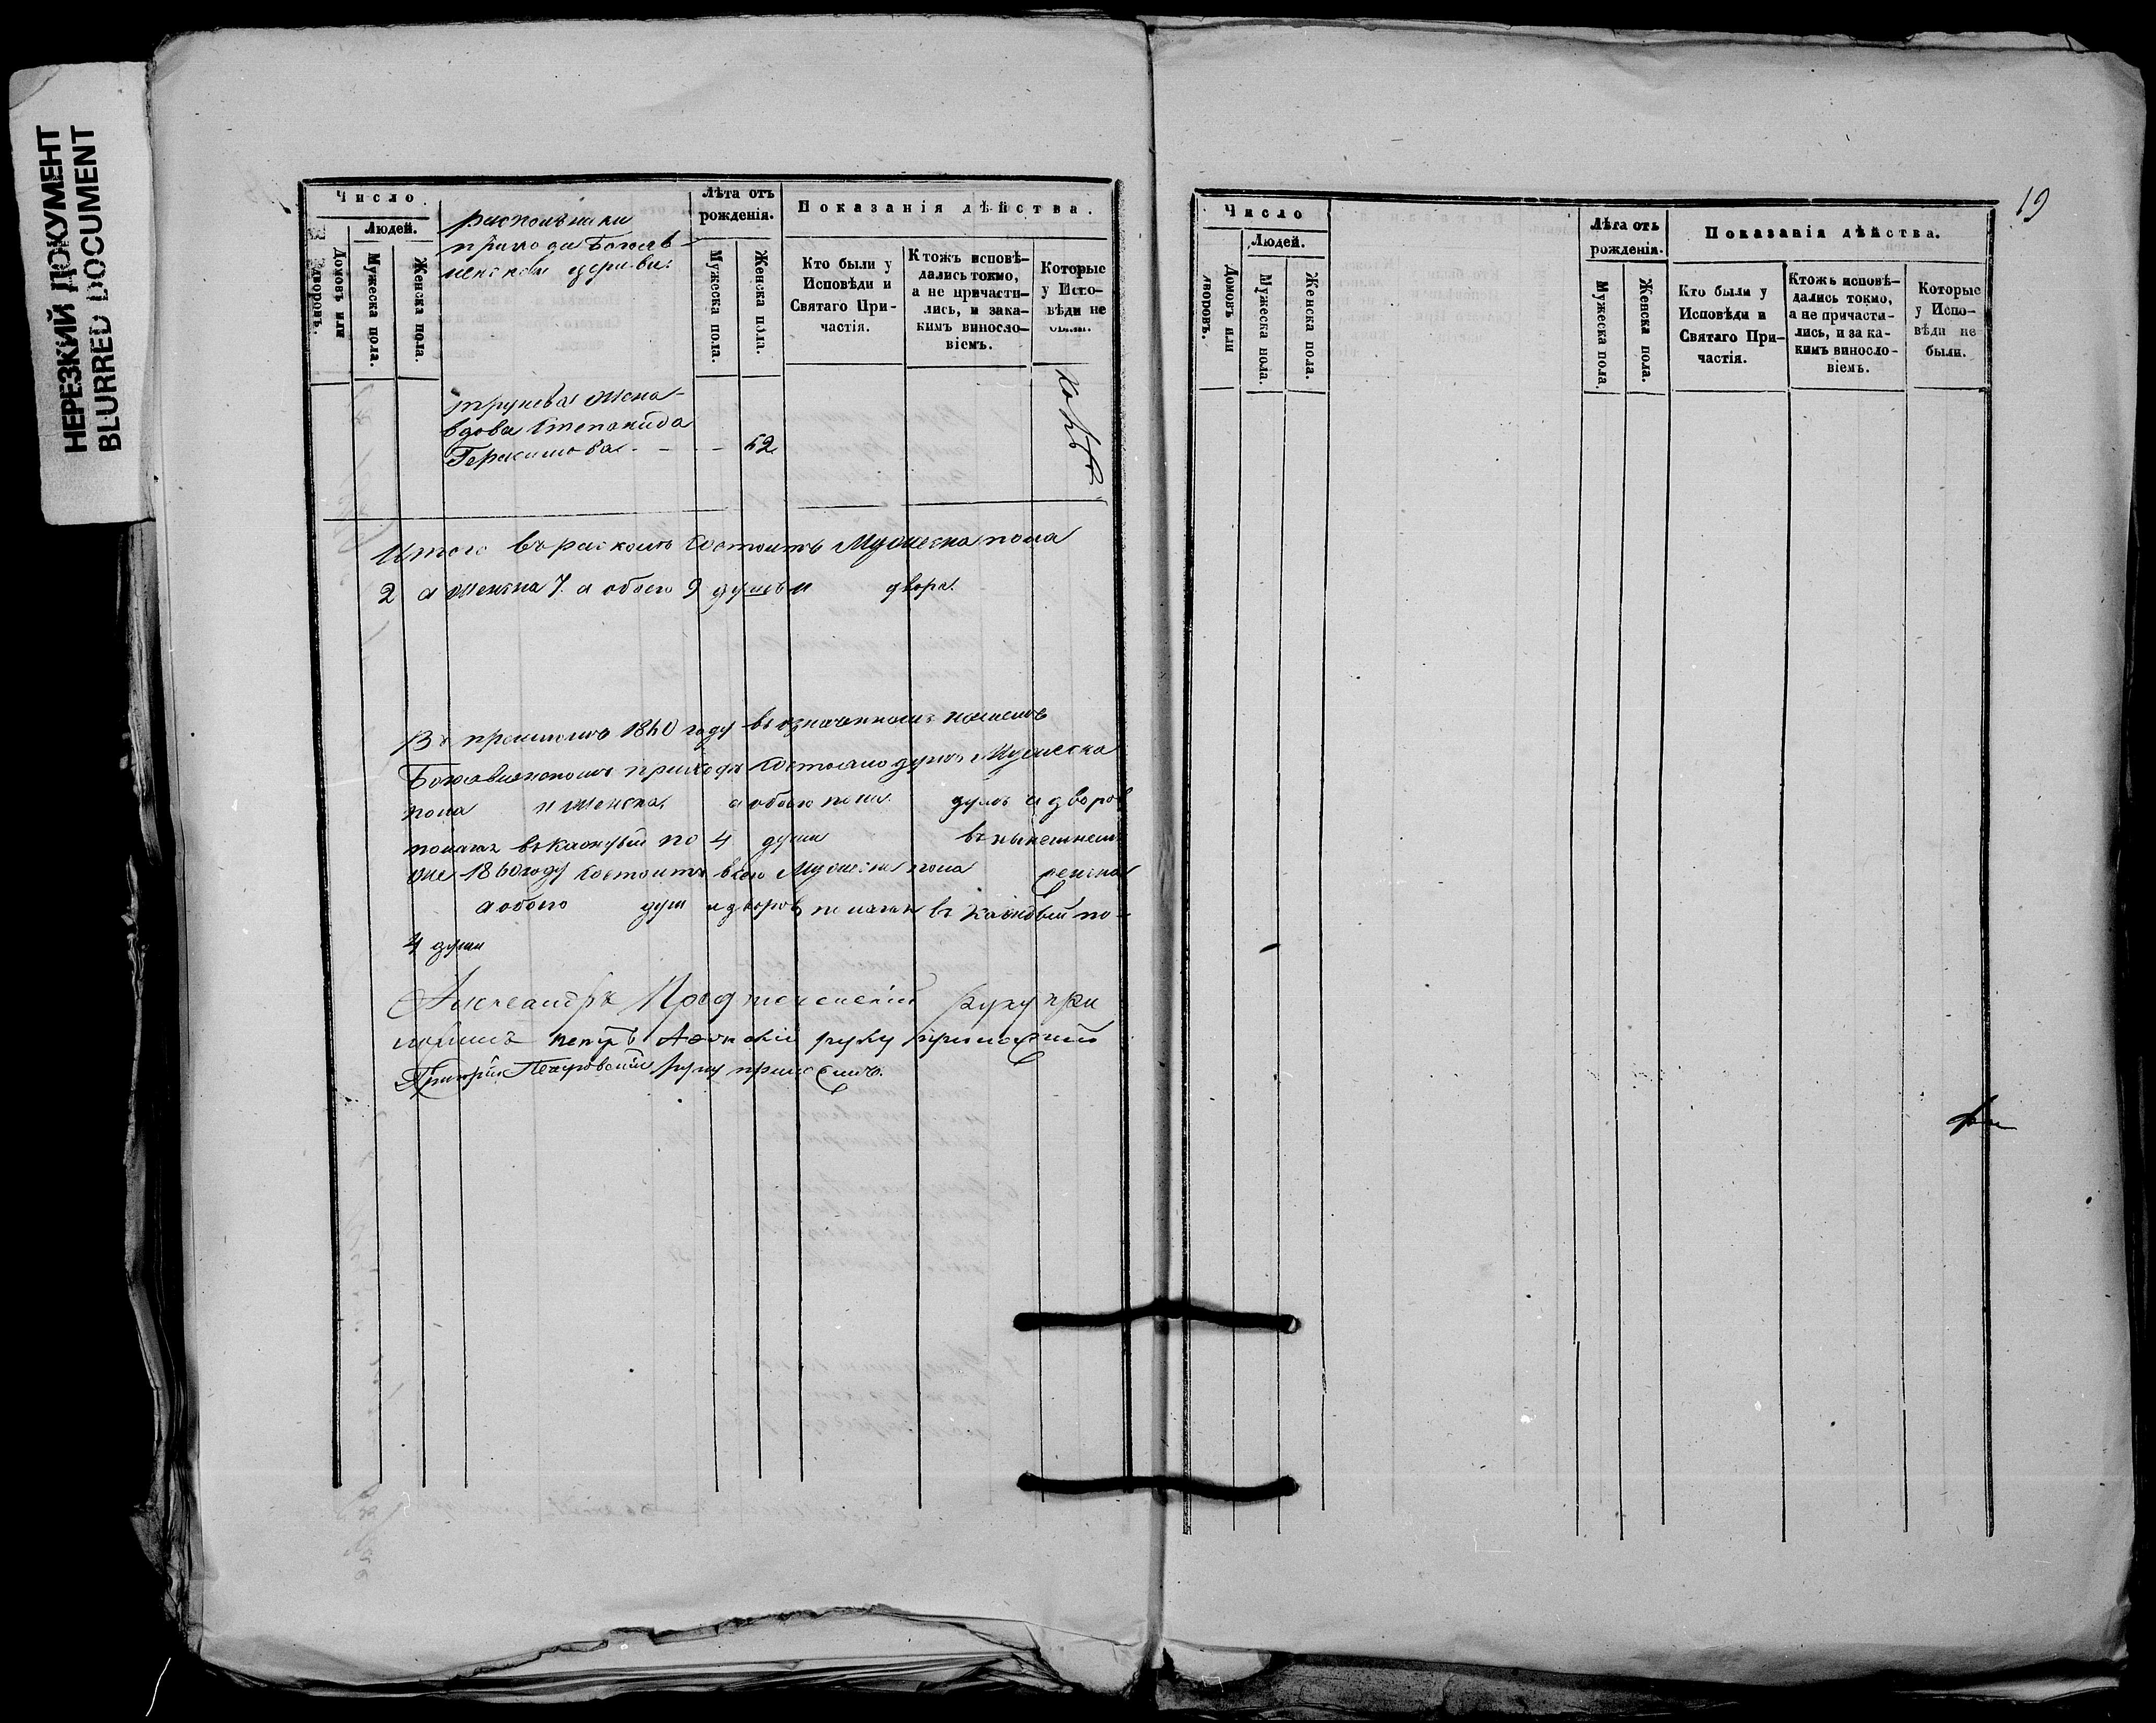 НЕРЕЗКИЙ ДОКУМЕНТ
BLURRED DOCUMENT
Число.
Людей.
Домовъ или дворовъ.
Мужеска пола.
Женска пола.
раскольники
прихода Богояв-
ленской церкви:
Лѣта отъ
рожденія.
Мужеска пола.
Женска пола.
Показанія дѣйства.
Кто были у
Исповѣди и
Святаго При-
частія.
Ктожъ исповѣ-
дались токмо,
а не причасти-
лись, и зака-
кимъ винсло-
віемъ.
Которые
у Испо-
вѣди не
были.
жена
вдова Степанида
Герасимова - - - 52
Итого въ расколѣ состоитъ Мужеска пола
2 а женска 7. а обоего 9 душъ и двора.
Въ прошломъ 1840 году въ означенномъ
Богоявленскомъ приходѣ состояло душъ Мужеска
пола и женска а обоего пола душъ и дворов
полагая въ каждый по 4 души въ нынешнем
же 1860 году состоитъ всего Мужеска пола женска
а обоего душ и дворов полагая въ каждый по-
4 души
Александръ Предтеченскій руку при
ложилъ Петръ Аѳонскій руку приложилъ
Григорій Петровскій руку приложилъ.
19
Число
Людей.
Домовъ или дворовъ.
Мужеска пола.
Женска пола.
Лѣта отъ
рожденія.
Мужеска пола.
Женска пола.
Показанія дѣйства.
Кто были у
Исповѣди и
Святаго При-
частія.
Ктожъ исповѣ-
дались токмо,
а не причасти-
лись, и за ка-
кимъ винсло-
віемъ.
Которые
у Испо-
вѣди не
были.